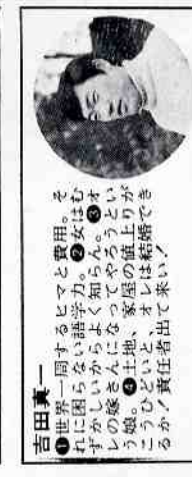 吉田真一
❶世界一周するヒマと費用。そ
れに困らない語学力。❷女はむ
ずかしいからよく知らん。❸オ
レの嫁さんになってやろうとい
う娘。❹土地、家屋の値上りが
こうひどいと、オレは結婚でき
るか！責任者出て来い！